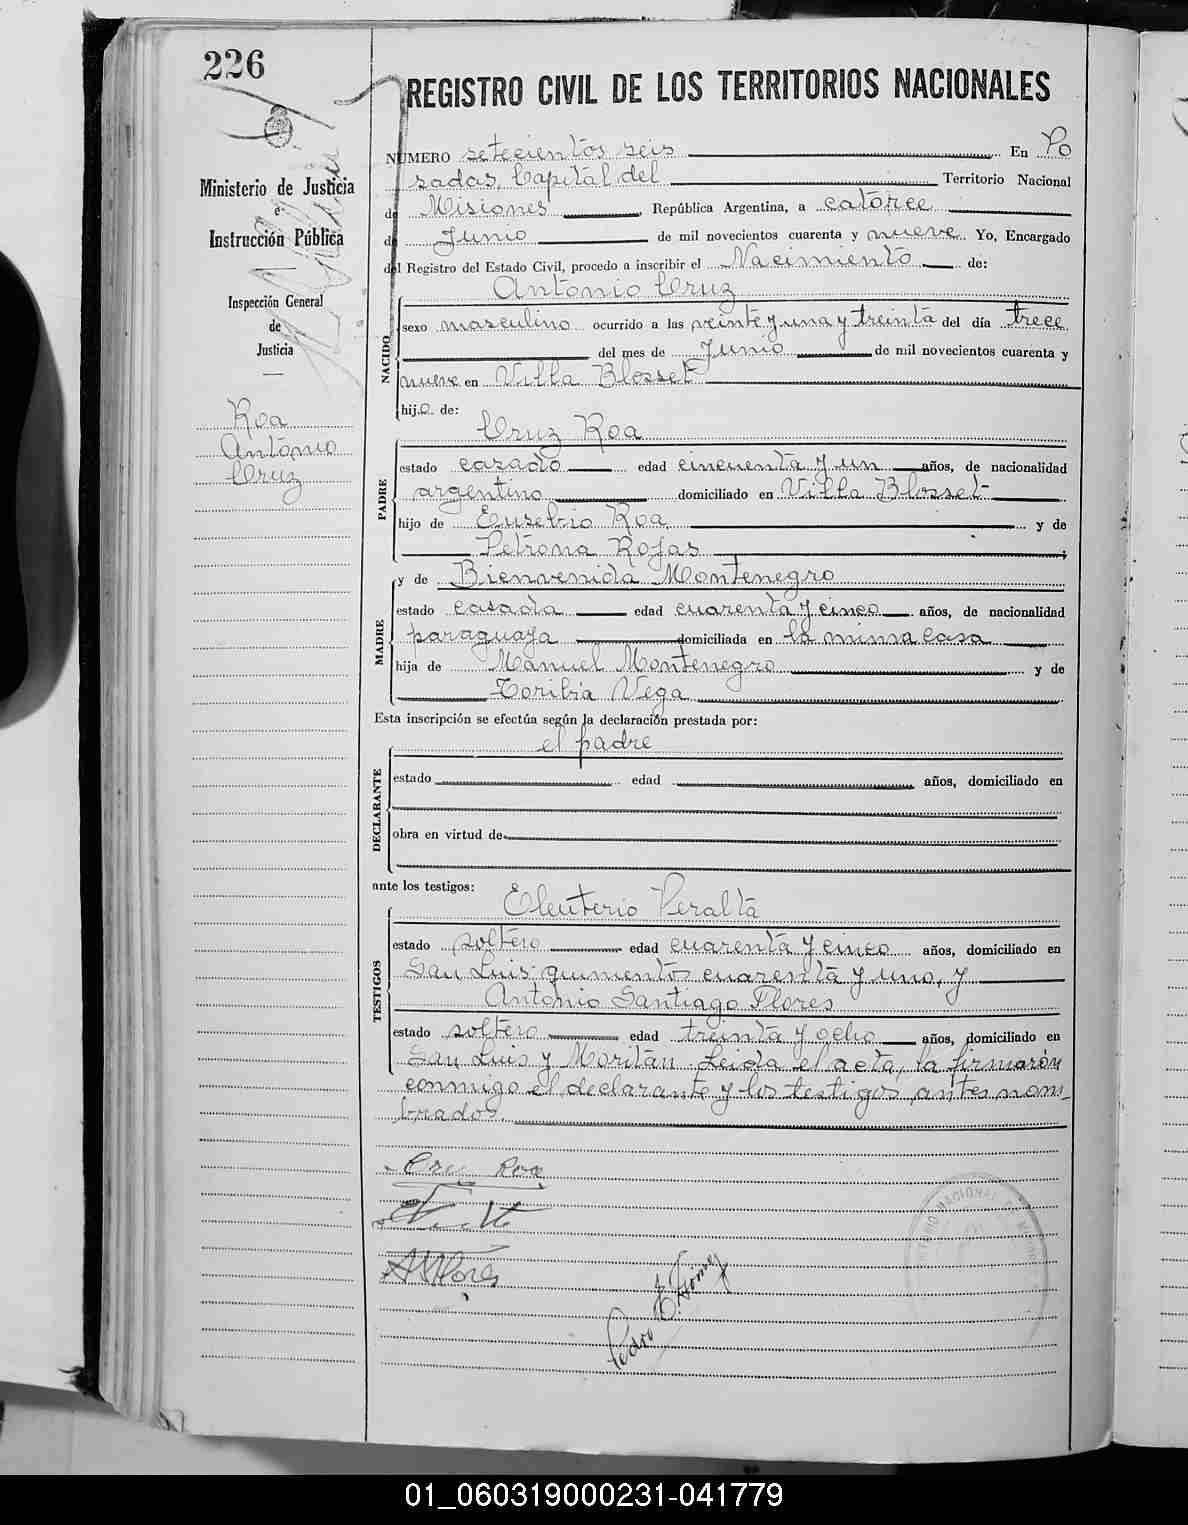 226
REGISTRO CIVIL DE LOS TERRITORIOS NACIONALES
Ministerio de Justicia
e
Instrucción Pública
Inspección General
de
Justicia
Roa
Antonio
Cruz
NUMERO setecientos seis En Po
sadas, Capital del Territorio Nacional
de Misiones, República Argentina, a catorce
de Junio de mil novecientos cuarenta y nueve Yo, Encargado
del Registro del Estado Civil, procedo a inscribir el Nacimiento de:
Antonio Cruz
NACIDO
sexo masculino ocurrido a las veinte y una y treinta del día trece
del mes de Junio de mil novecientos cuarenta y
nueve en Villa Blosset
hijo de:
Cruz Roa
PADRE
estado casado edad cincuenta y un años, de nacionalidad
argentino domiciliado en Villa Blosset
hijo de Eusebio Roa y de
Petrona Rojas ;
y de Bienvenida Montenegro
MADRE
estado casada edad cuarenta y cinco años, de nacionalidad
paraguaya domiciliada en la misma casa
hija de Manuel Montenegro y de
Toribia Vega
Esta inscripción se efectúa según la declaración prestada por:
el padre
DECLARANTE
estado edad años, domiciliado en
obra en virtud de
ante los testigos:
Eleuterio Peralta
TESTIGOS
estado soltero edad cuarenta y cinco años, domiciliado en
San Luis quinientos cuarenta y uno, y
Antonio Santiago Flores
estado soltero edad treinta y ocho años, domiciliado en
San Luis y Moritán Leida el acta, la firmarón
conmigo el declarante y los testigos antes nom-
brados.
Cruz Roa
Pedro E. Gómez
01_060319000231-041779